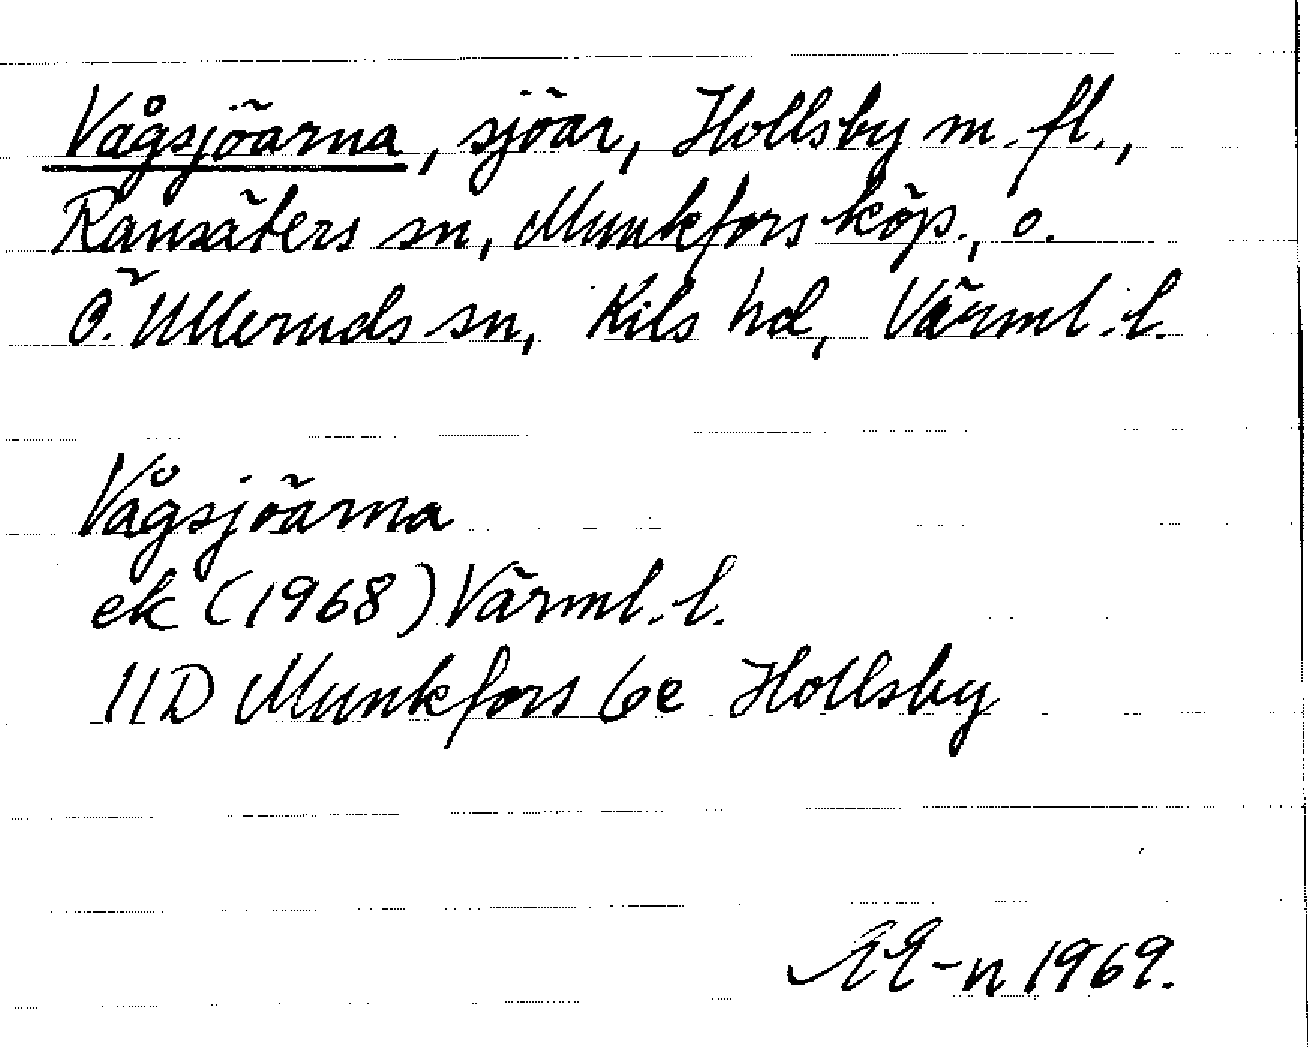 Vågsjöarna, sjöar, Hollsby m. fl.,
Ransäters sn, Munkfors köp., o.
Ö. Ulleruds sn, Kils hd, Värml. l.
Vågsjöarna
ek (1968) Värml. l.
11D Munkfors 6e Hollsby
EE-n 1969.